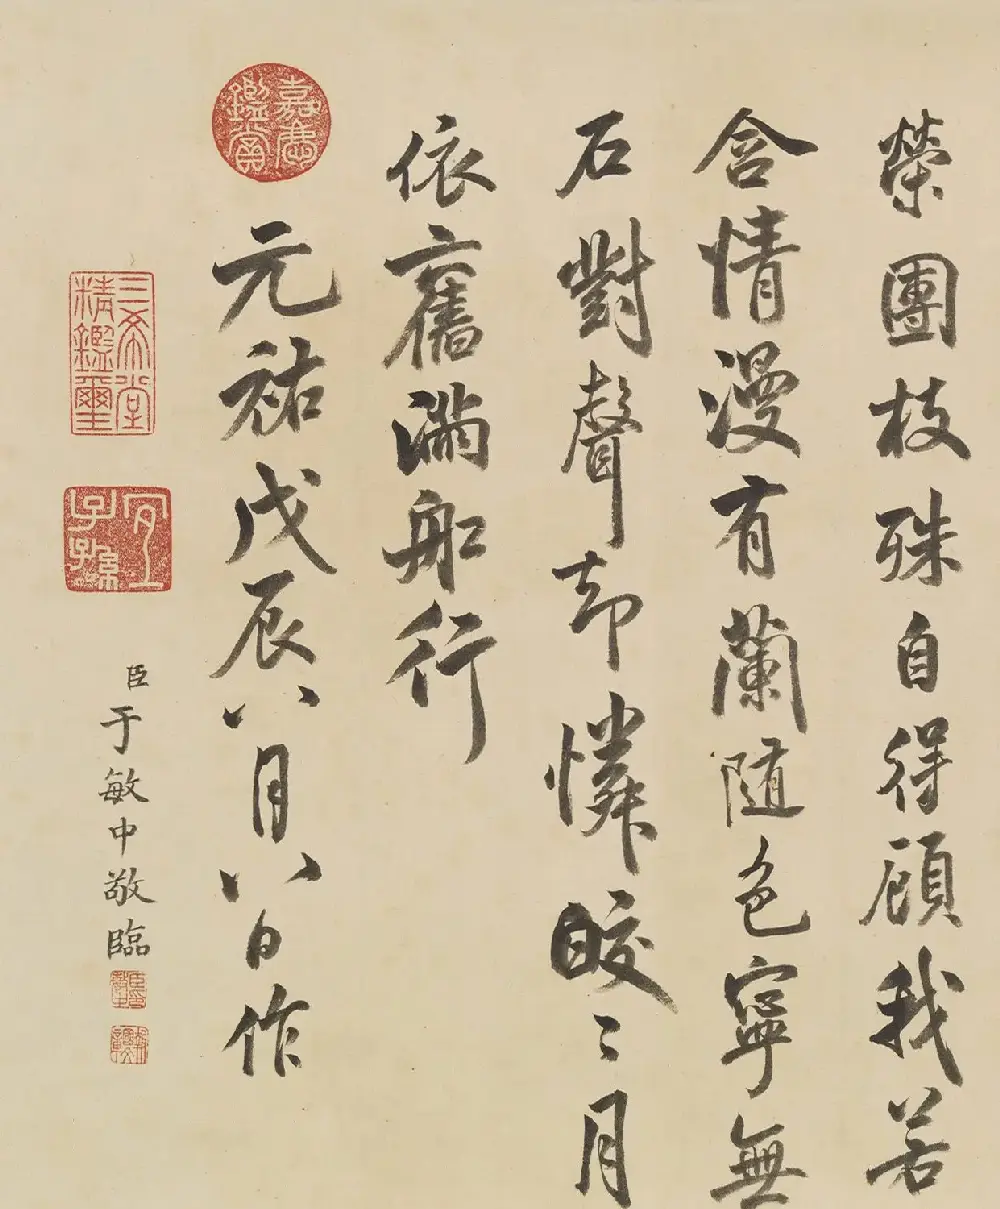 榮團枝殊自得顧我若
含情漫有蘭隨色寧無
石對聲却憐皎〻月
依舊滿船行
元祐戊辰八月八日作
嘉慶鑑賞
三希堂精鑑璽
宜子孫
臣于敏中敬臨